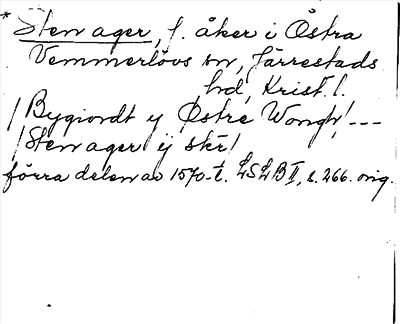 * Sten ager, f. åker i Östra
Vemmerlövs sn, Järrestads
hd, Krist. l.
/Bygiordt y Østre Wongh/---
/Sten ager ÿ skr/
förra delen av 1570-t. LSLB II, s. 266. orig.